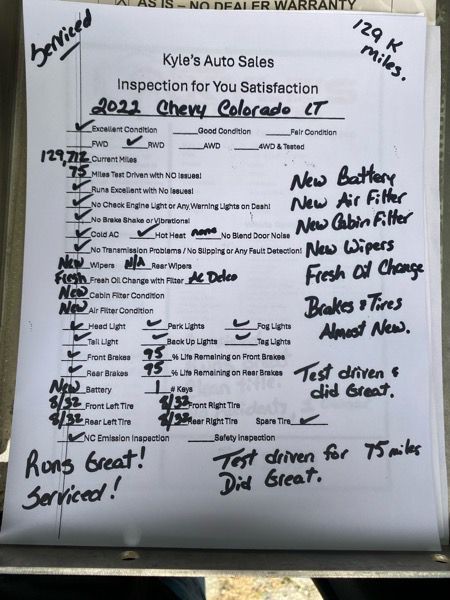 AS IS – NO DEALER WARRANTY
Serviced
129K miles.
Kyle's Auto Sales
Inspection for You Satisfaction
2022 Chevy Colorado LT
✓ Excellent Condition ____Good Condition ____Fair Condition
____FWD ✓ RWD ____AWD ____4WD & Tested
129,712 Current Miles
75 Miles Test Driven with NO Issues!
✓ Runs Excellent with No Issues!
✓ No Check Engine Light or Any Warning Lights on Dash!
✓ No Brake Shake or Vibrations!
✓ Cold AC ✓ Hot Heat none No Blend Door Noise
✓ No Transmission Problems / No Slipping or Any Fault Detection!
New Wipers N/A Rear Wipers
Fresh Fresh Oil Change with Filter AC Delco
New Cabin Filter Condition
New Air Filter Condition
✓ Head Light ✓ Park Lights ✓ Fog Lights
✓ Tail Light ✓ Back Up Lights ✓ Tag Lights
✓ Front Brakes 95 % Life Remaining on Front Brakes
✓ Rear Brakes 95 % Life Remaining on Rear Brakes
New Battery 1 # Keys
8/32 Front Left Tire 8/32 Front Right Tire
8/32 Rear Left Tire 8/32 Rear Right Tire Spare Tire ✓
✓ NC Emission Inspection ____Safety Inspection
New Battery
New Air Filter
New Cabin Filter
New Wipers
Fresh Oil Change
Brakes & Tires
Almost New.
Test driven &
did Great.
Runs Great!
Serviced!
Test driven for 75 miles
Did Great.